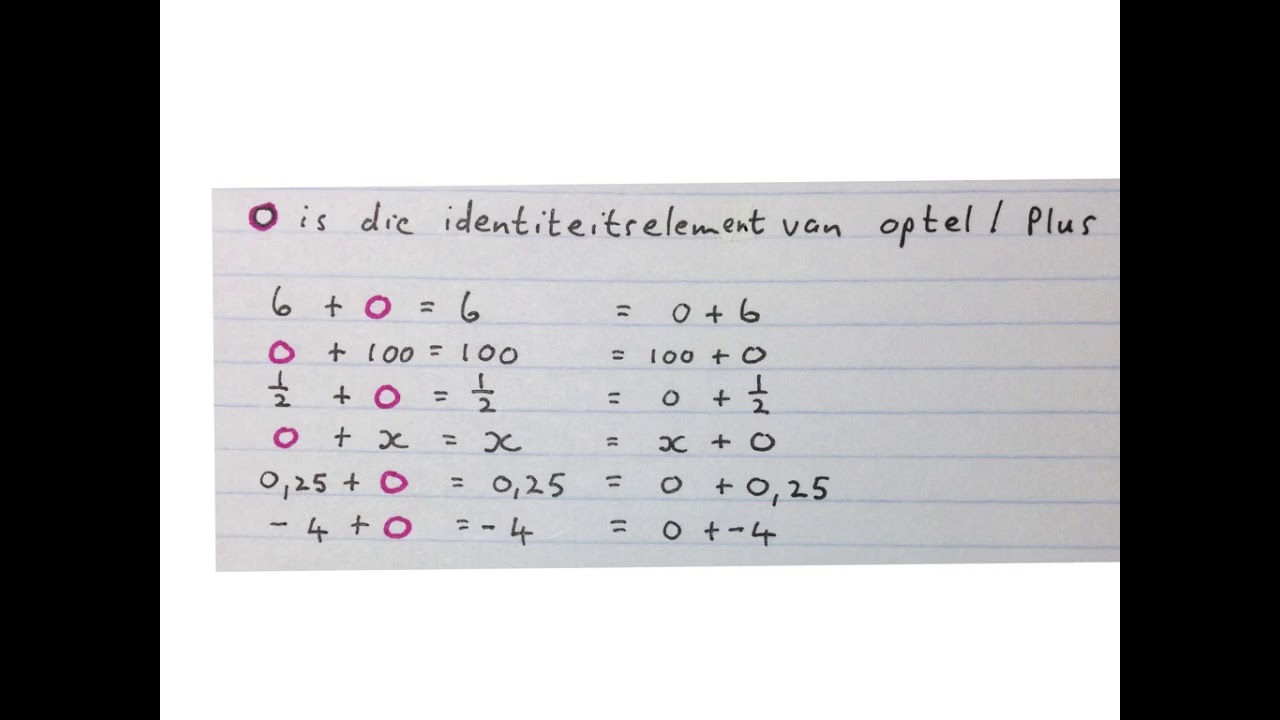 0 is die identiteitselement van optel / Plus
6 + 0 = 6 = 0 + 6
0 + 100 = 100 = 100 + 0
1/2 + 0 = 1/2 = 0 + 1/2
0 + x = x = x + 0
0,25 + 0 = 0,25 = 0 + 0,25
- 4 + 0 = - 4 = 0 + - 4